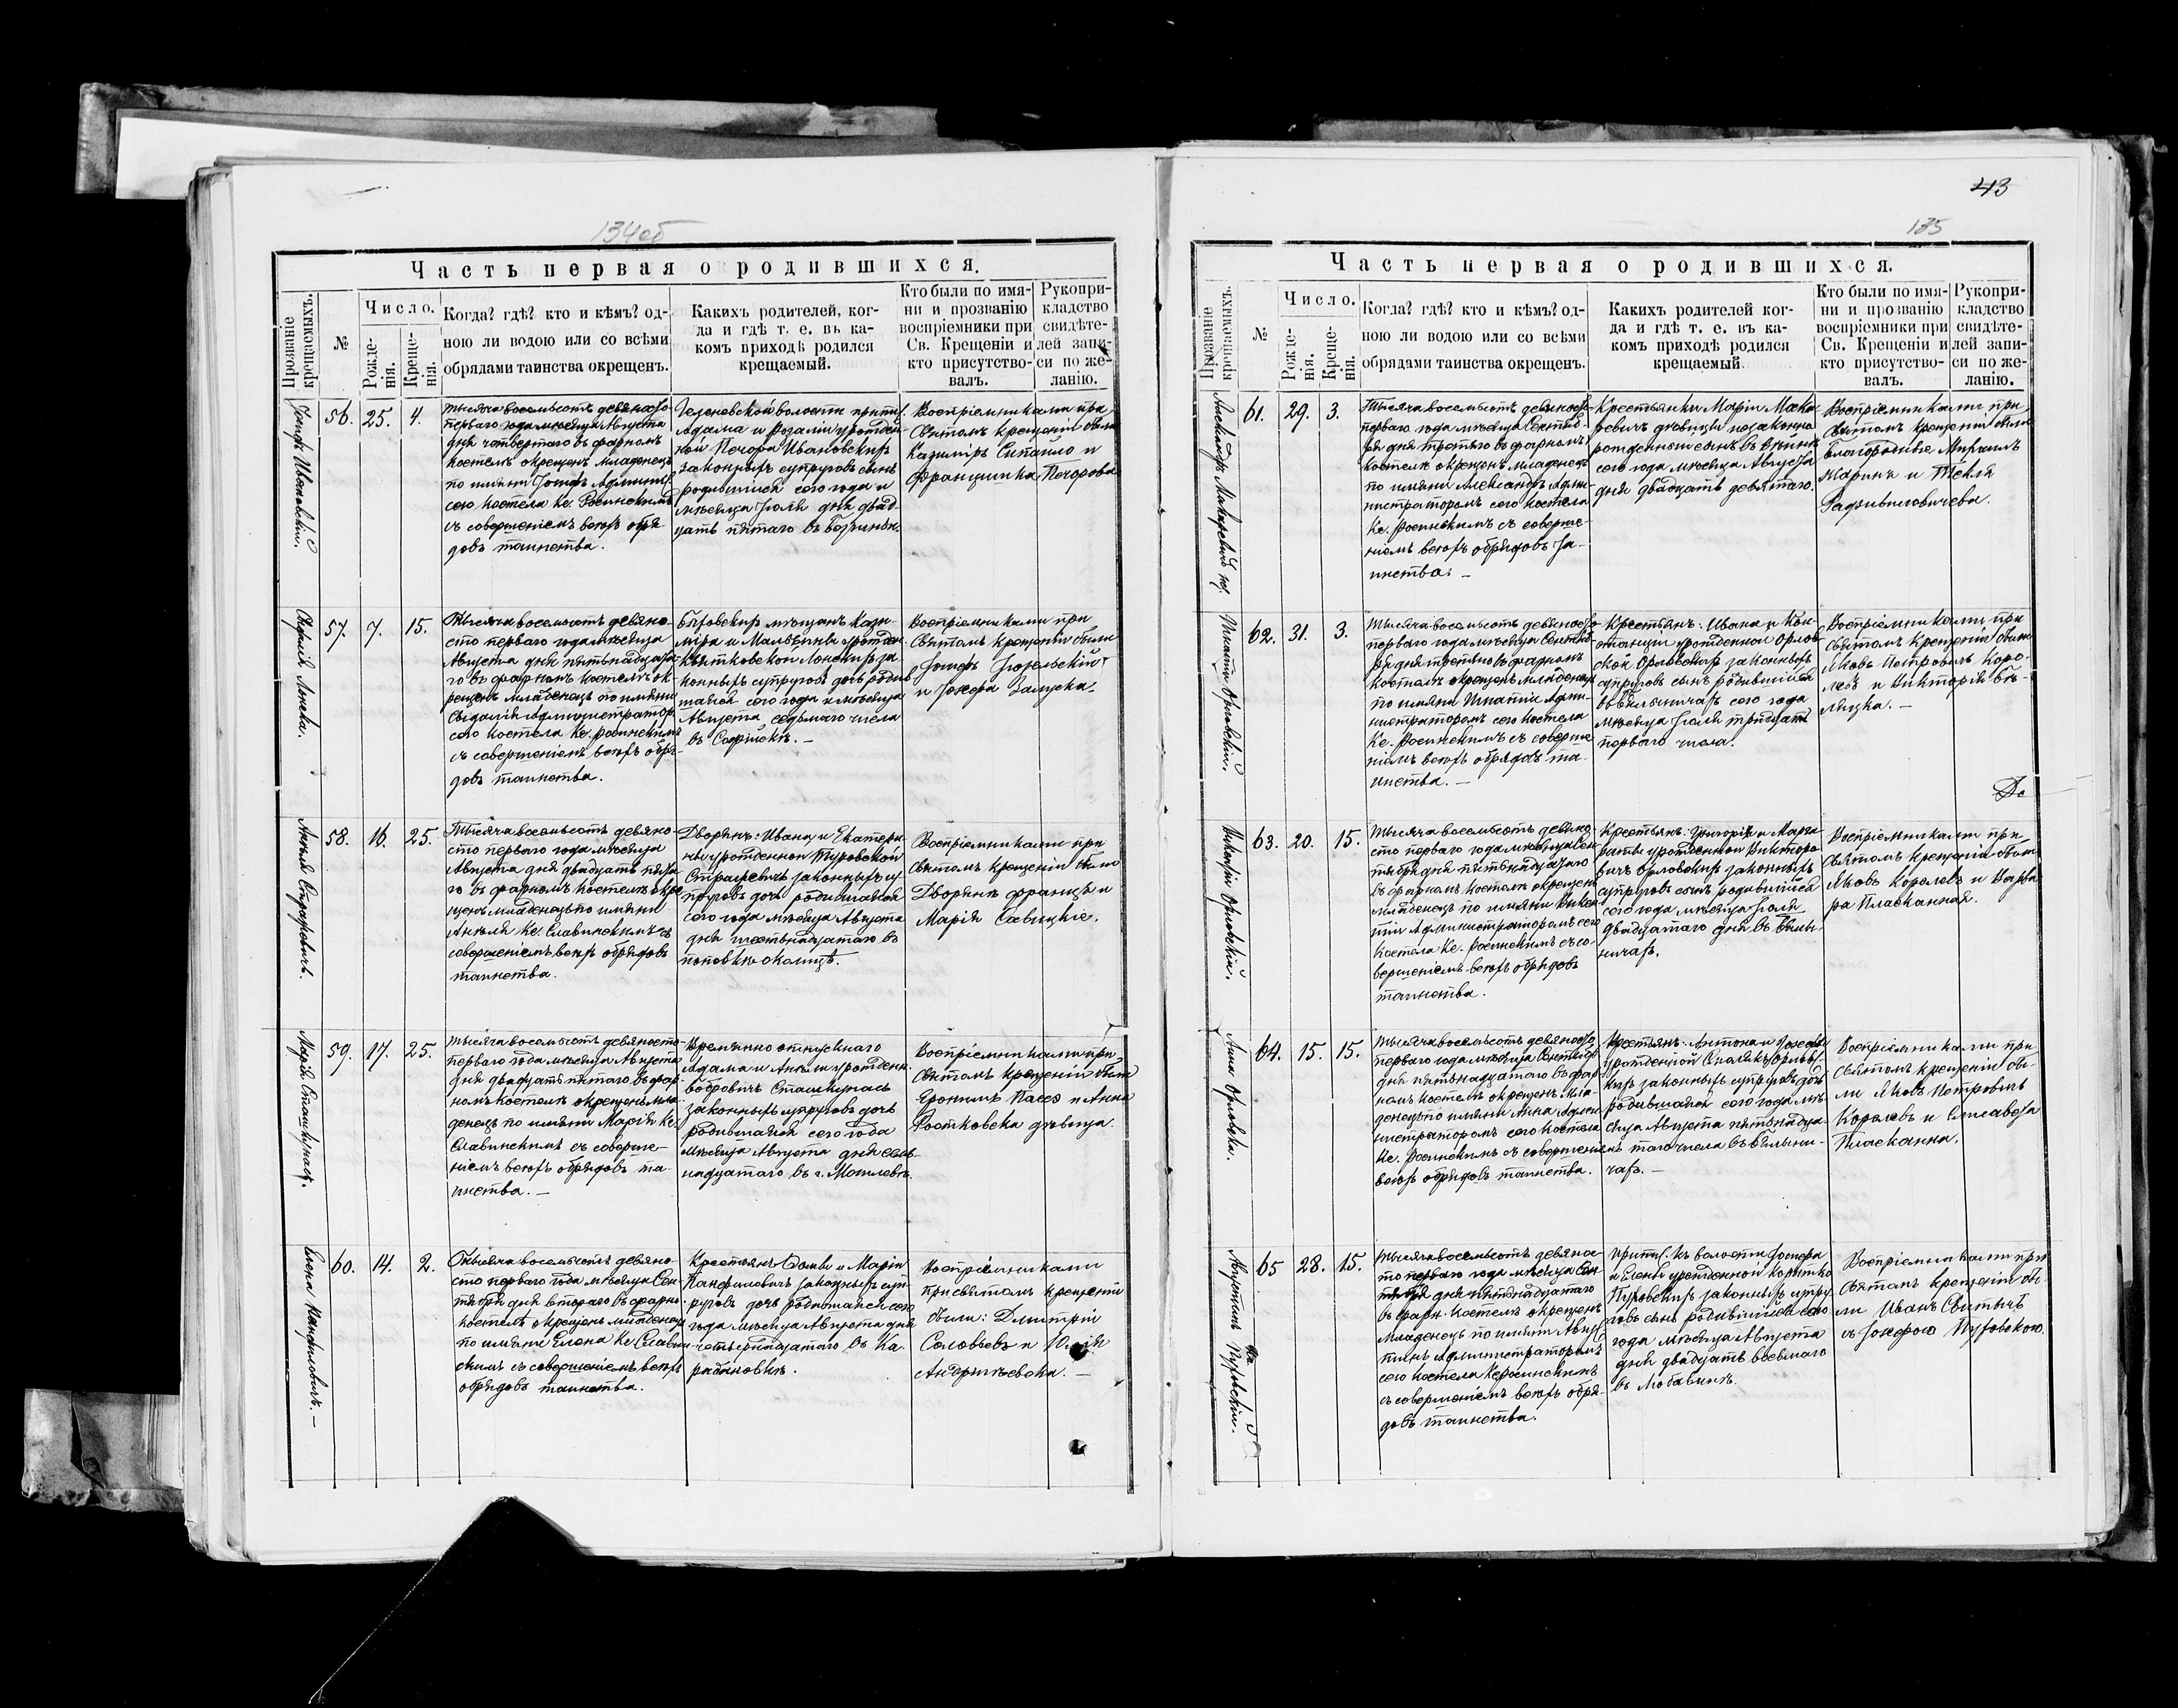 134об
Часть первая о родившихся.
Прозваніе крещаемыхъ.
№
Число.
Рожде-
нія.
Креще-
нія.
Когда? гдѣ? кто и кѣмъ? од-
ною ли водою или со всѣми
обрядами таинства окрещенъ.
Какихъ родителей, ког-
да и гдѣ т. е. въ ка-
комъ приходѣ родился
крещаемый.
Кто были по имя-
ни и прозванію
воспріемники при
Св. Крещеніи и
кто присутство-
валъ.
Рукопри-
кладство
свидѣте-
лей запи-
си по же-
ланію.
Іосифъ Ивановскій.
56. 25. 4.
Тысяча восемьсотъ девяносто
перваго года мѣсяца Августа
дня четвертаго въ фарномъ
костелѣ окрещенъ младенецъ
по имяни Іосифъ Админис.
сего костела Кс. Росинскимъ
съ совершеніемъ всѣхъ обря-
довъ таинства.
волости припис.
Адама и Розаліи урожден-
ной Печора Ивановскихъ
законныхъ супруговъ сынъ
родившійся сего года и
мѣсяца Іюля дня двад-
цать пятаго въ
Воспріемниками при
Святомъ крещеніи были
Казиміръ Сипайло и
Францишка Печорова
Людмила Лянска.
57. 7. 15.
Тысяча восемьсотъ девяно-
сто перваго года мѣсяца
Августа дня пятьнадцата-
го въ фарномъ костелѣ ок-
рещенъ младенецъ по имяни
Администратор.
сего костела Кс. Росинскимъ
съ совершеніемъ всѣхъ обря-
довъ таинства.
мѣщанъ Кази-
міра и Мальвины урожден.
Квятковской за-
конныхъ супруговъ дочь родив-
шаяся сего года и мѣсяца
Августа седьмаго числа
въ Софійскѣ. —
Воспріемниками при
Святомъ крещеніи были
Іосифъ
и Іозефа Залуска.
Анеля Страшевичъ.
58. 16. 25.
Тысяча восемьсотъ девяно-
сто перваго года мѣсяца
Августа дня двадцать пята-
го въ фарномъ костелѣ окре-
щенъ младенецъ по имяни
Анеля Кс. Славинскимъ съ
совершеніемъ всѣхъ обрядовъ
таинства.
Дворянъ: Ивана и Екатери-
ны урожденной Туровской
Страшевичъ законныхъ су-
пруговъ дочь родившаяся
сего года мѣсяца Августа
дня шестьнадцатаго въ
околицѣ.
Воспріемниками при
Святомъ крещеніи были
Дворяне Францъ и
Марія Савицкіе.
Марія Сташкунасъ.
59. 17. 25.
Тысяча восемьсотъ девяносто
перваго года мѣсяца Августа
дня двадцать пятаго въ фар-
номъ костелѣ окрещенъ мла-
денецъ по имяни Марія Кс.
Славинскимъ съ соверше-
ніемъ всѣхъ обрядовъ та-
инства. —
Временно отпускнаго
Адама и Анели урожден.
Бобровичъ Сташкунасъ
законныхъ супруговъ дочь
родившаяся сего года
мѣсяца Августа дня семь-
надцатаго въ г. Могилевѣ.
Воспріемниками при
Святомъ крещеніи были
Еронимъ и Анна
Ростковска дѣвица.
Елена Панфиловичъ. —
60. 14. 2.
Тысяча восемьсотъ девяно-
сто перваго года мѣсяца Сен-
тября дня втораго въ фарно.
костелѣ окрещенъ младенецъ
по имяни Елена Кс Славин-
скимъ съ совершеніемъ всѣхъ
обрядовъ таинства.
Крестьянъ и Маріи
Панфиловичъ законныхъ суп-
руговъ дочь родившаяся сего
года мѣсяца Августа дня
четырнадцатаго въ Ка-
Воспріемниками
при святомъ крещеніи
были: Дмитрій
Соловьевъ и Юлія
Андржеевска. —
43
135
Часть первая о родившихся.
Прозваніе крещаемыхъ.
№
Число.
Рожде-
нія.
Креще-
нія.
Когда? гдѣ? кто и кѣмъ? од-
ною ли водою или со всѣми
обрядами таинства окрещенъ.
Какихъ родителей ког-
да и гдѣ т. е. въ ка-
комъ приходѣ родился
крещаемый
Кто были по имя-
ни и прозванію
воспріемники при
Св. Крещеніи и
кто присутство-
валъ.
Рукопри-
кладство
свидѣте-
лей запи-
си по же-
ланію.
Александръ Макаревичъ
61. 29. 3.
Тысяча восемьсотъ девяносто
перваго года мѣсяца Сентяб-
ря дня третьяго въ фарномъ
костелѣ окрещенъ младенецъ
по имяни Александръ Адми-
нистраторомъ сего костела
Кс. Росинскимъ съ соверше-
ніемъ всѣхъ обрядовъ та-
инства. —
Крестьянки Маріи Мака-
ревичъ дѣвицы незаконно
рожденный сынъ въ
сего года мѣсяца Августа
дня двадцать девятаго.
Воспріемниками при
Святомъ крещеніи были
Благородные Михаилъ
и Текля
Игнатій Орловскій.
62. 31. 3.
Тысяча восемьсотъ девяносто
перваго года мѣсяца Сентяб-
ря дня третьяго въ фарномъ
костелѣ окрещенъ младенецъ
по имяни Игнатій Адми-
нистраторомъ сего костела
Кс. Росинскимъ съ соверше-
ніемъ всѣхъ обрядовъ та-
инства. —
Крестьянъ: Ивана и Кон-
станціи урожденной Орлов-
ской Орловскихъ законныхъ
супруговъ сынъ родившійся
въ Бѣлыничахъ сего года
мѣсяца Іюля тридцать
перваго числа.
Воспріемниками при
Святомъ крещеніи были
Яковъ Петровичъ Коро-
левъ и Викторія
Викентій Орловскій.
63. 20. 15.
Тысяча восемьсотъ девяно-
сто перваго года мѣсяца Сен-
тября дня пятьнадцатаго
въ фарномъ костелѣ окрещенъ
младенецъ по имяни Викен-
тій Администраторомъ сего
костела Кс. Росинскимъ съ со-
вершеніемъ всѣхъ обрядовъ
таинства.
Крестьянъ: Григорія и Марга-
риты урожденной Викторо-
вичъ Орловскихъ законныхъ
супруговъ сынъ родившійся
сего года мѣсяца Іюля
двадцатаго дня въ Бѣлы-
ничахъ.
Воспріемниками при
Святомъ крещеніи были
Яковъ Королевъ и Варва-
ра Пласканная.
Анна Орловска.
64. 15. 15.
Тысяча восемьсотъ девяносто
перваго года мѣсяца Сентября
дня пятьнадцатаго въ фар-
номъ костелѣ окрещенъ мла-
денецъ по имяни Анна Адми-
нистраторомъ сего костела
Кс. Росинскимъ съ совершеніемъ
всѣхъ обрядовъ таинства.
Крестьянъ: Антона и
урожденной Орловс-
кихъ законныхъ супруговъ дочь
родившаяся сего года мѣ-
сяца Августа пятьнадца-
таго числа въ Бѣлыни-
чахъ. —
Воспріемниками при
Святомъ крещеніи бы-
ли Яковъ Петровичъ
Королевъ и Елисавета
Пласканна.
Августинъ Пуховскій.
65 28. 15.
Тысяча восемьсотъ девянос-
то перваго года мѣсяца Сен-
тября дня пятьнадцатаго
въ фарн. костелѣ окрещенъ
младенецъ по имяни Авгус-
тинъ Администраторомъ
сего костела Кс Росинскимъ
съ совершеніемъ всѣхъ обря-
довъ таинства.
Припис. къ волости
и Елены урожденной Коритко
Пуховскихъ законныхъ супру-
говъ сынъ родившійся сего
года мѣсяца Августа
дня двадцать восьмаго
въ
Воспріемниками при
Святомъ крещеніи бы-
ли Иванъ
съ Іозефою Пуховскою.